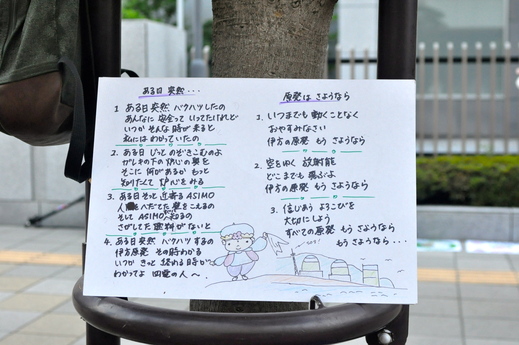 ある日 突然・・・
1 ある日 突然 バクハツしたの
あんなに 安全って いってたけれど
いつか そんな 時が 来ると
私には わかっていたの
2. ある日 じっと のぞきこむのよ
ガレキの下の 炉心の奥を
そこに 何があるか もっと
知りたくて 炉心をみる
3. ある日 そっと 近寄る ASIMO
人間を へだてた 壁を こえるの
そして ASIMOは 知るの
さがしてた 燃料が ないと
4. ある日 突然 バクハツ するの
伊方原発 その時 わかる
いつか きっと 終わる 時が
わかってよ 四電の人〜
原発は さようなら
1. いつまでも 動くことなく
おやすみなさい
伊方の原発 もう さようなら
2. 空をゆく 放射能
どこまでも 飛ぶよ
伊方の原発 もう さようなら
3. 信じあう よろこびを
大切にしよう
すべての原発 もう さようなら
もう さようなら・・・